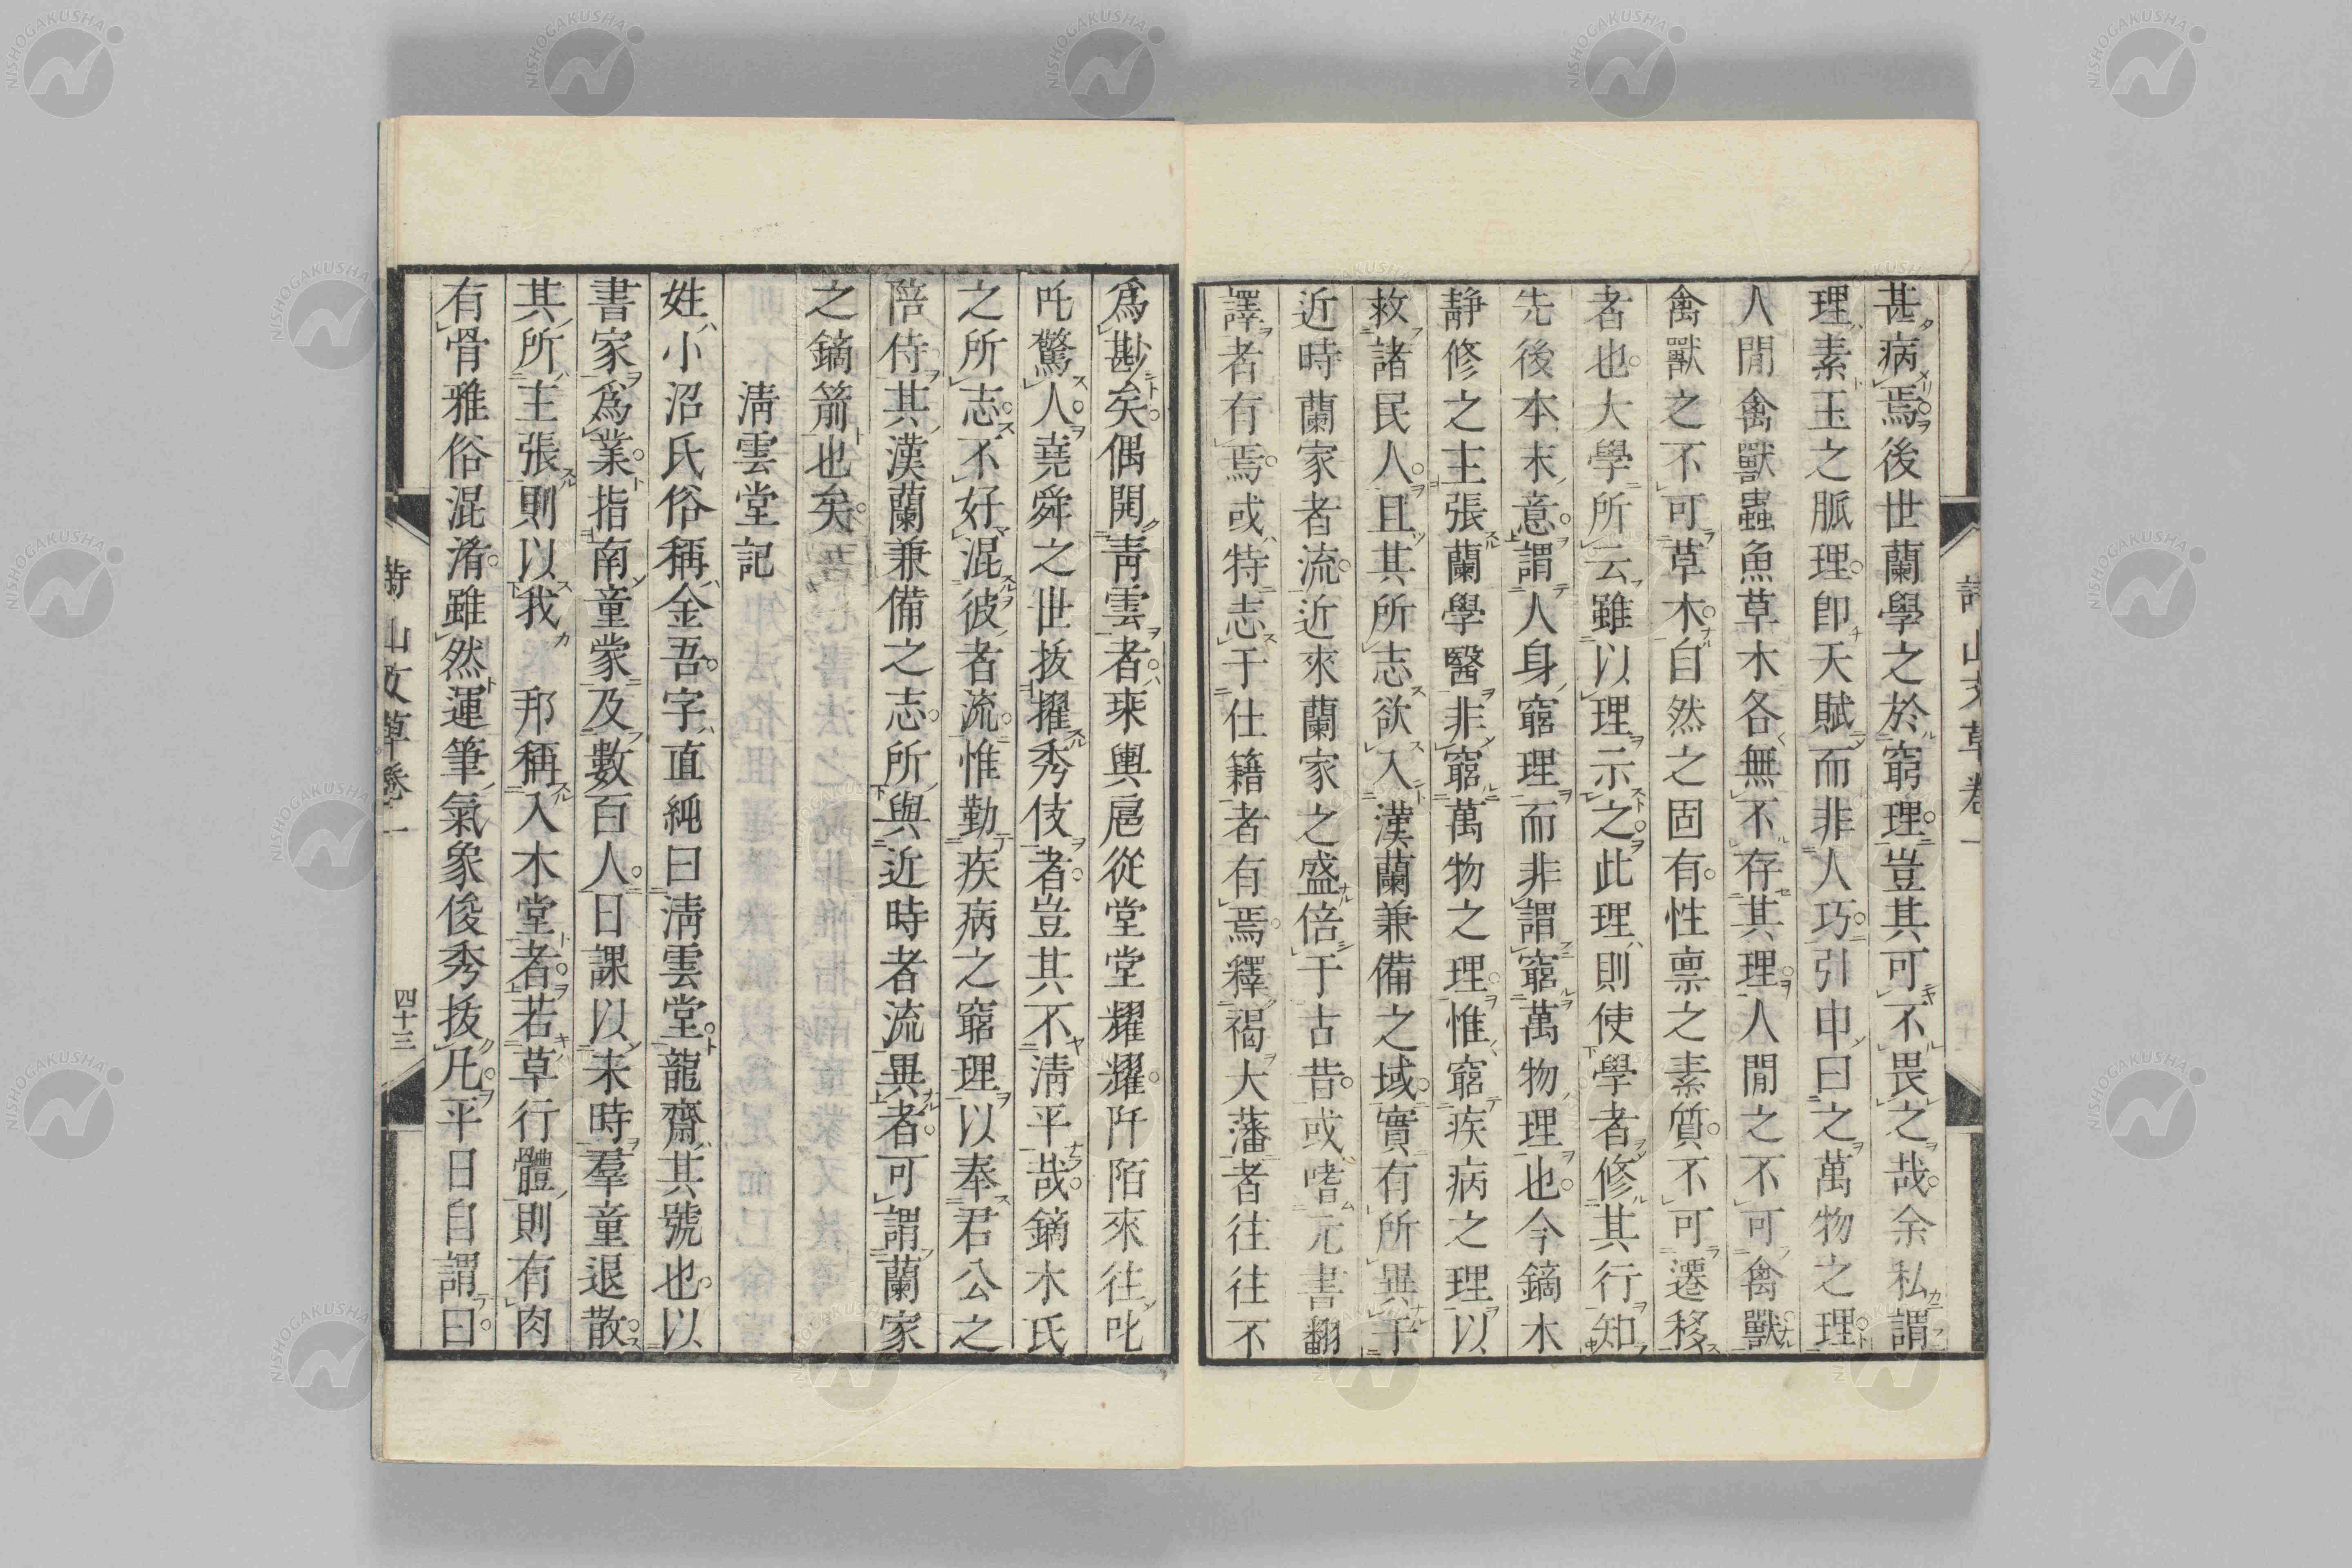 甚病焉後世蘭學之於窮理豈其可不畏之哉余私謂
理素玉之脈理卽天賦而非人巧引申曰之萬物之理
人閒禽獸蟲魚草木各無不存其理人閒之不可禽獸
禽獸之不可草木自然之固有性稟之素質不可遷移
者也大學所云雖以理示之此理則使學者修其行知
先後本末意謂人身窮理而非謂窮萬物理也今鏑木
靜修之主張蘭學醫非窮萬物之理惟窮疾病之理以
救諸民人且其所志欲入漢蘭兼備之域實有所異于
近時蘭家者流近來蘭家之盛倍于古昔或嗜元書翻
譯者有焉或特志于仕籍者有焉釋褐大藩者往往不
爲尠矣偶開靑雲者乗輿扈從堂堂耀耀阡陌來往叱
吒驚人堯舜之世拔擢秀伎者豈其不淸平哉鏑木氏
之所志不好混彼者流惟勤疾病之窮理以奉君公之
陪侍其漢蘭兼備之志所與近時者流異者可謂蘭家
之鏑箭也矣
淸雲堂記
姓小沼氏俗稱金吾字直純曰淸雲堂龍齋其號也以
書家爲業指南童蒙及數百人日課以来時羣童退散
其所主張則以我 邦稱入木堂者若草行體則有肉
有骨雅俗混淆雖然運筆氣象俊秀拔凡平日自謂曰
詩山文草卷一
詩山文草卷一 四十三